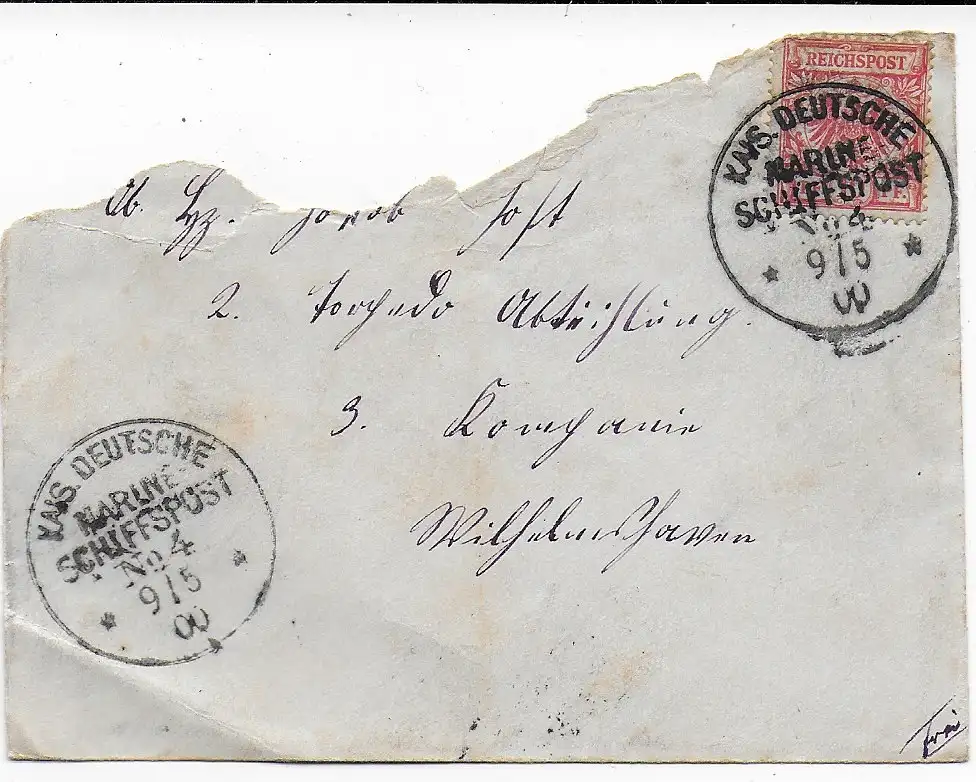 REICHSPOST
KAIS. DEUTSCHE
MARINE
SCHIFFSPOST
No 4
9/5
00
Jacob Jost
2. Torpedo Abteihlung.
3. Kompanie
Wilhelmshaven
KAIS. DEUTSCHE
MARINE
SCHIFFSPOST
No 4
9/5
00
frei